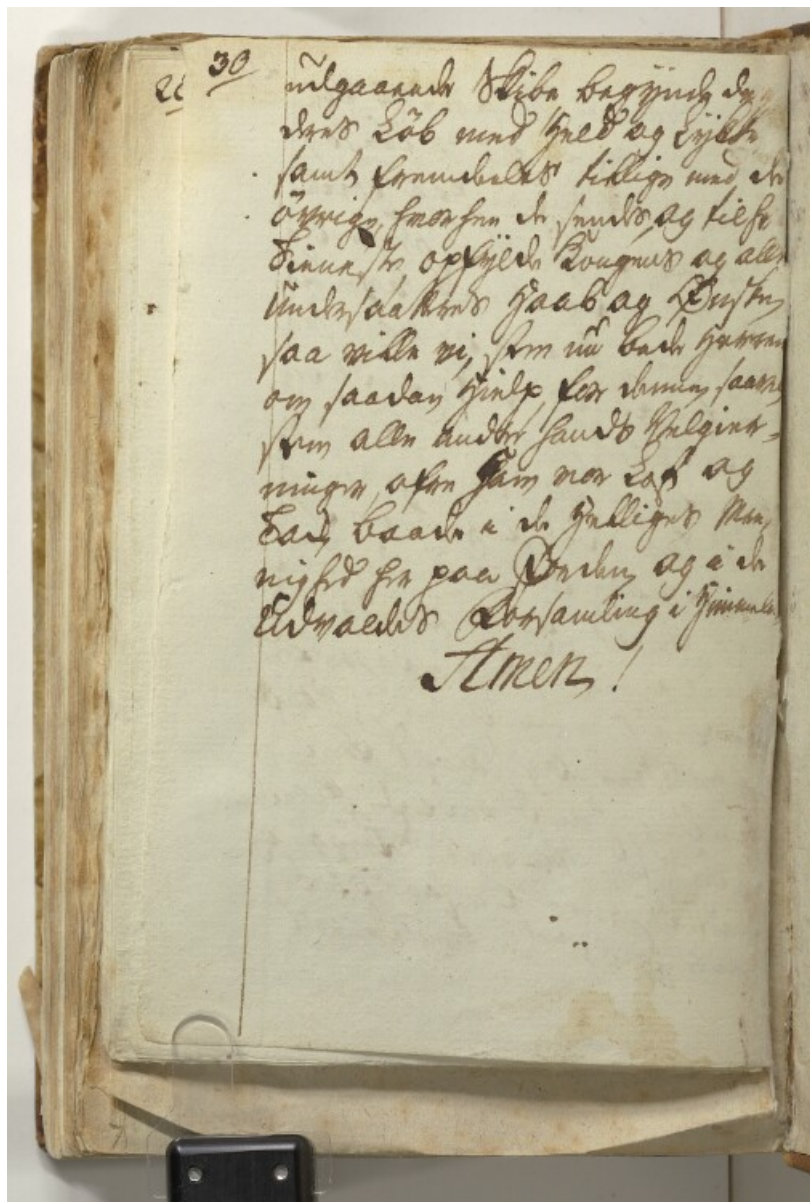 30
udgaaende Skibe begynde
deres Løb med Held og Lykke
samt fremdeeles tillige med de
övrige, hvorhen de sendes, og til
Tieneste opfylde Kongens og alle
Undersaatters Haab og Ønske,
saa ville vi, som nu bede Herren
om saadan Hielp, for denne, saavel
som alle andre hands Velgier-
ninger, ofre Ham vor Lof og
Tak, baade i de Helliges Mee,
nighed her paa Jorden, og i de
Udvaldes Forsamling i Himmelen
Amen!